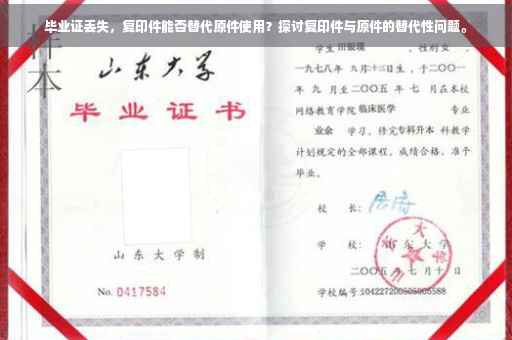 毕业证丢失，复印件能否替代原件使用？探讨复印件与原件的替代性问题。
样本
山东大学
毕业证书
山东大学制
No. 0417584
学生
性别女，
一九七八年 九月十二日生，于二〇〇一
年 九 月至二〇〇五 年 七 月在本校
网络教育学院临床医学 专业
业余 学习，修完专科升本 科教学
计划规定的全部课程，成绩合格，准予
毕业。
校 长：
学 校：山东大学
二〇〇五 年 七 月 十 日
学校编号:104227200505005588